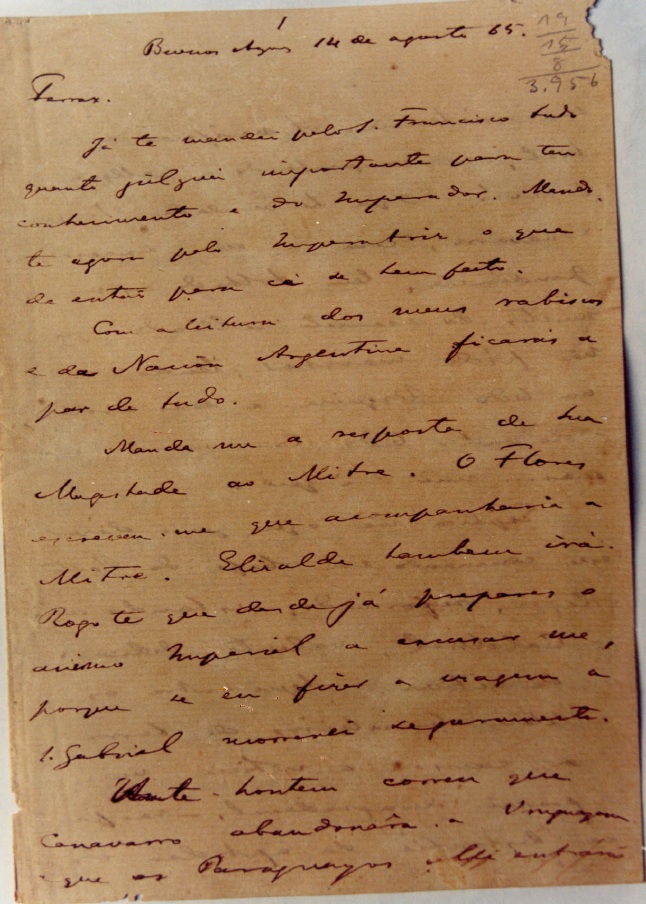 1
Buenos Ayres 14 de agosto 65.
19
15
8
3.956
Ferraz.
Já te mandei pelo S. Francisco tudo
quanto julguei importante para teu
conhecimento e do Imperador. Mando-
te agora pelo Imperatriz o que
de então para cá se tem feito.
Com a leitura dos meus rabiscos
e da Nacion Argentina ficarás a
par de tudo.
Manda-me a resposta de Sua
Magestade ao Mitre. O Flores
escreveu-me que acompanharia a
Mitre. Elizalde tambem irá.
Rogo te que desde já prepares o
animo Imperial a excusar me,
porque se eu fizer a viagem a
S. Gabriel morrerei seguramente.
Ante-hontem correu que
Canavarro abandonára a Uruguayana
e que os Paraguayos alli entrárão